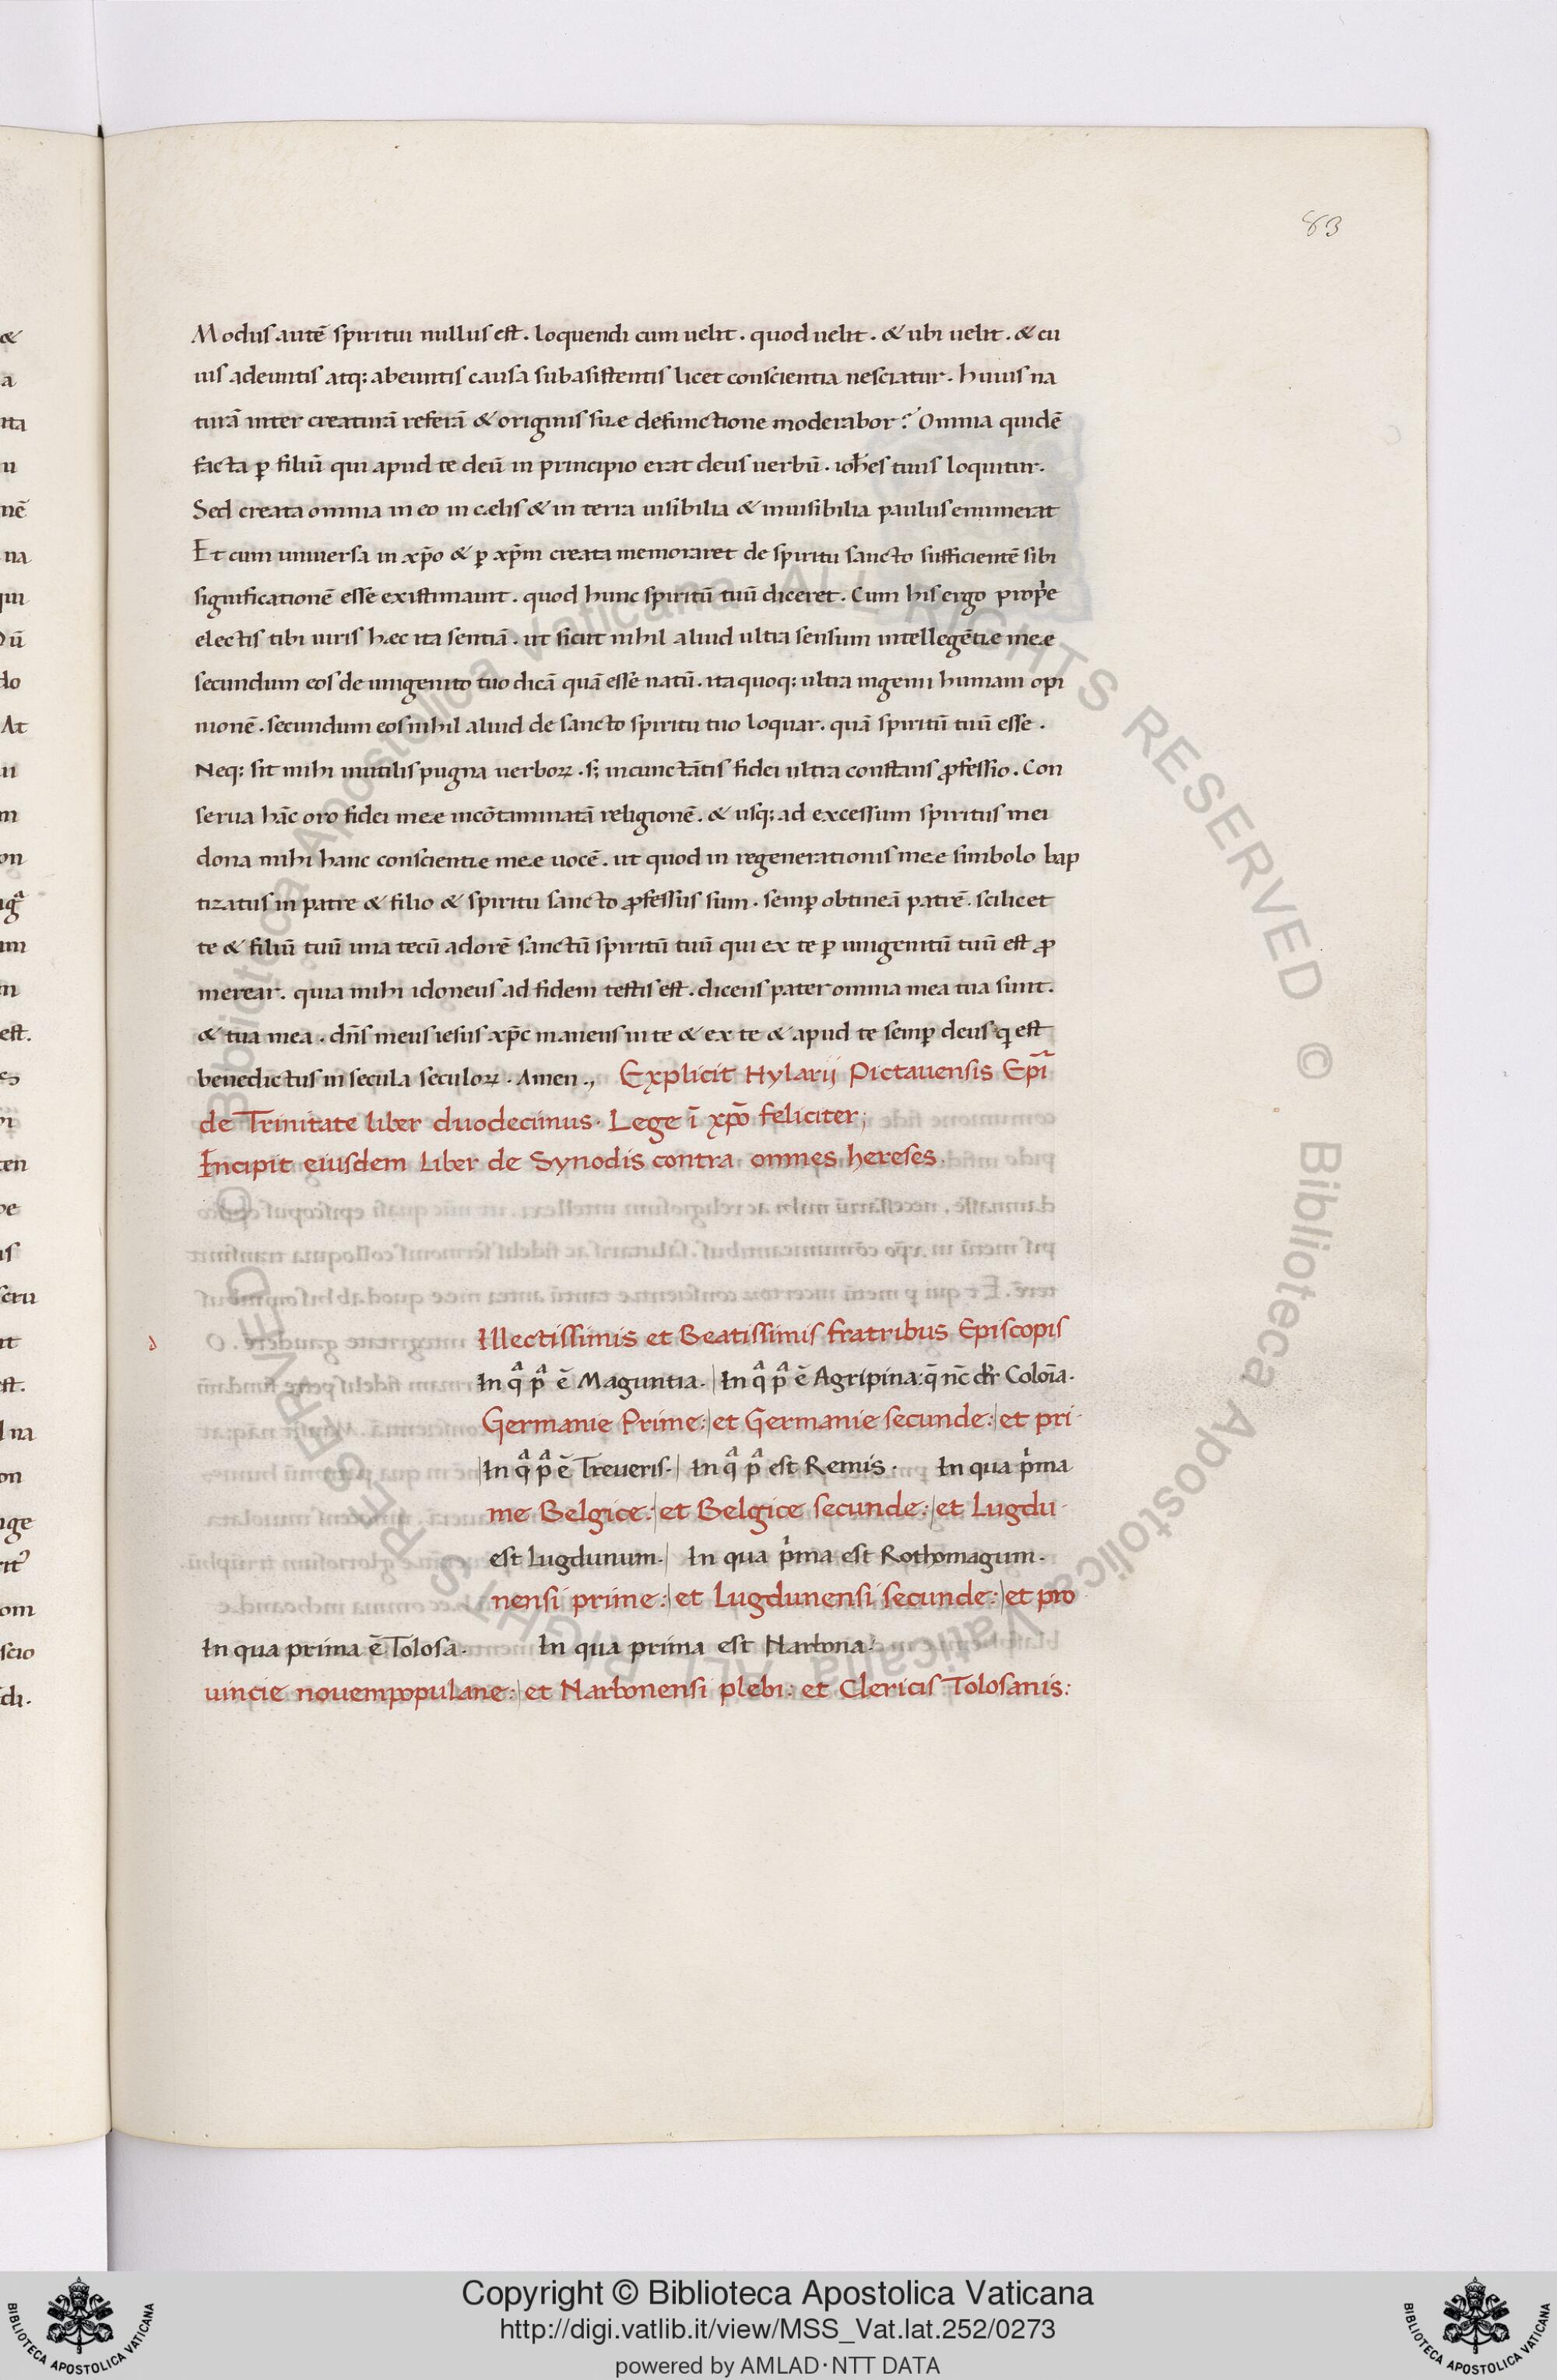 83
Modus autē spiritui nullus est . loquendi cum uelit . quod uelit . & ubi uelit . & cu
ius adeuntis atq; abeuntis causa subasistentis licet conscientia nesciatur . huius na
turā inter creaturā referā & originis suæ defunctione moderabor ? Omnia quidē
facta ꝑ filiū qui apud te deū in principio erat deus uerbū . ioh̅es tuus loquitur .
Sed creata omnia in eo in cælis & in terra uisibilia & inuisibilia paulus enumerat
Et cum uniuersa in xp̄o & ꝑ xp̄m creata memoraret de spiritu sancto sufficientē sibi
significationē esse existimauit . quod hunc spiritū tuū diceret . Cum his ergo propͥe
electis tibi uiris hæc ita sentiā . ut sicut nihil aliud ultra sensum intellegētiæ meæ
secundum eos de unigenito tuo dicā quā esse natū . ita quoq; ultra ingenii humani opi
nionē . secundum eos nihil aliud de sancto spiritu tuo loquar . quā spiritū tuū esse .
Neq; sit mihi inutilis pugna uerboꝝ . s; incunctātis fidei ultra constans ꝓfessio . Con
serua hāc oro fidei meæ incōtaminatā religionē . & usq; ad excessum spiritus mei
dona mihi hanc conscientiæ meæ uocē . ut quod in regenerationis meæ simbolo bap
tizatus in patre & filio & spiritu sancto ꝓfessus sum . semꝑ obtineā patrē . scilicet
te & filiū tuū una tecū adorē sanctū spiritū tuū qui ex te ꝑ unigenitū tuū est ꝓ
merear . quia mihi idoneus ad fidem testis est . dicens pater omnia mea tua sunt .
& tua mea . dn̄s meus iesus xp̄c manens in te & ex te & apud te semꝑ deus q est
benedictus in secula seculoꝝ . Amen ., Explicit Hylarij Pictauensis Ep̄i
de Trinitate liber duodecimus . Lege ī xp̄o feliciter ;
Incipit eiusdem Liber de Synodis contra omnes hereses .
d
Illectissimis et Beatissimis fratribus Episcopis
In qᷓ pᷓ ē Maguntia . | In qᷓ pᷓ ē Agripina : q̄ nc̄ dr̄ Colōia .
Germanie Prime : | et Germanie secunde : | et pri
| In qᷓ pᷓ ē Treueris . | In qᷓ pᷓ est Remis . In qua pͥma
me Belgice : | et Belgice secunde : | et Lugdu
est Lugdunum . | In qua pͥma est Rothomagum .
nensi prime : | et Lugdunensi secunde : | et pro
In qua prima ē Tolosa . In qua prima est Narbona .
uincie nouempopulane : | et Narbonensi plebi : et Clericis Tolosanis :
© Biblioteca Apostolica Vaticana ALL RIGHTS RESERVED © Biblioteca Apostolica Vaticana ALL RIGHTS RESERVED
BIBLIOTECA APOSTOLICA VATICANA
Copyright © Biblioteca Apostolica Vaticana
http://digi.vatlib.it/view/MSS_Vat.lat.252/0273
powered by AMLAD·NTT DATA
BIBLIOTECA APOSTOLICA VATICANA